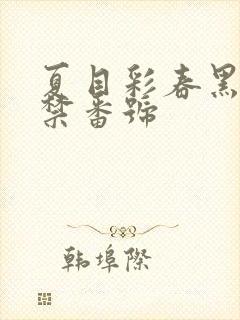 夏目彩春黑
禁番號
韩埠際